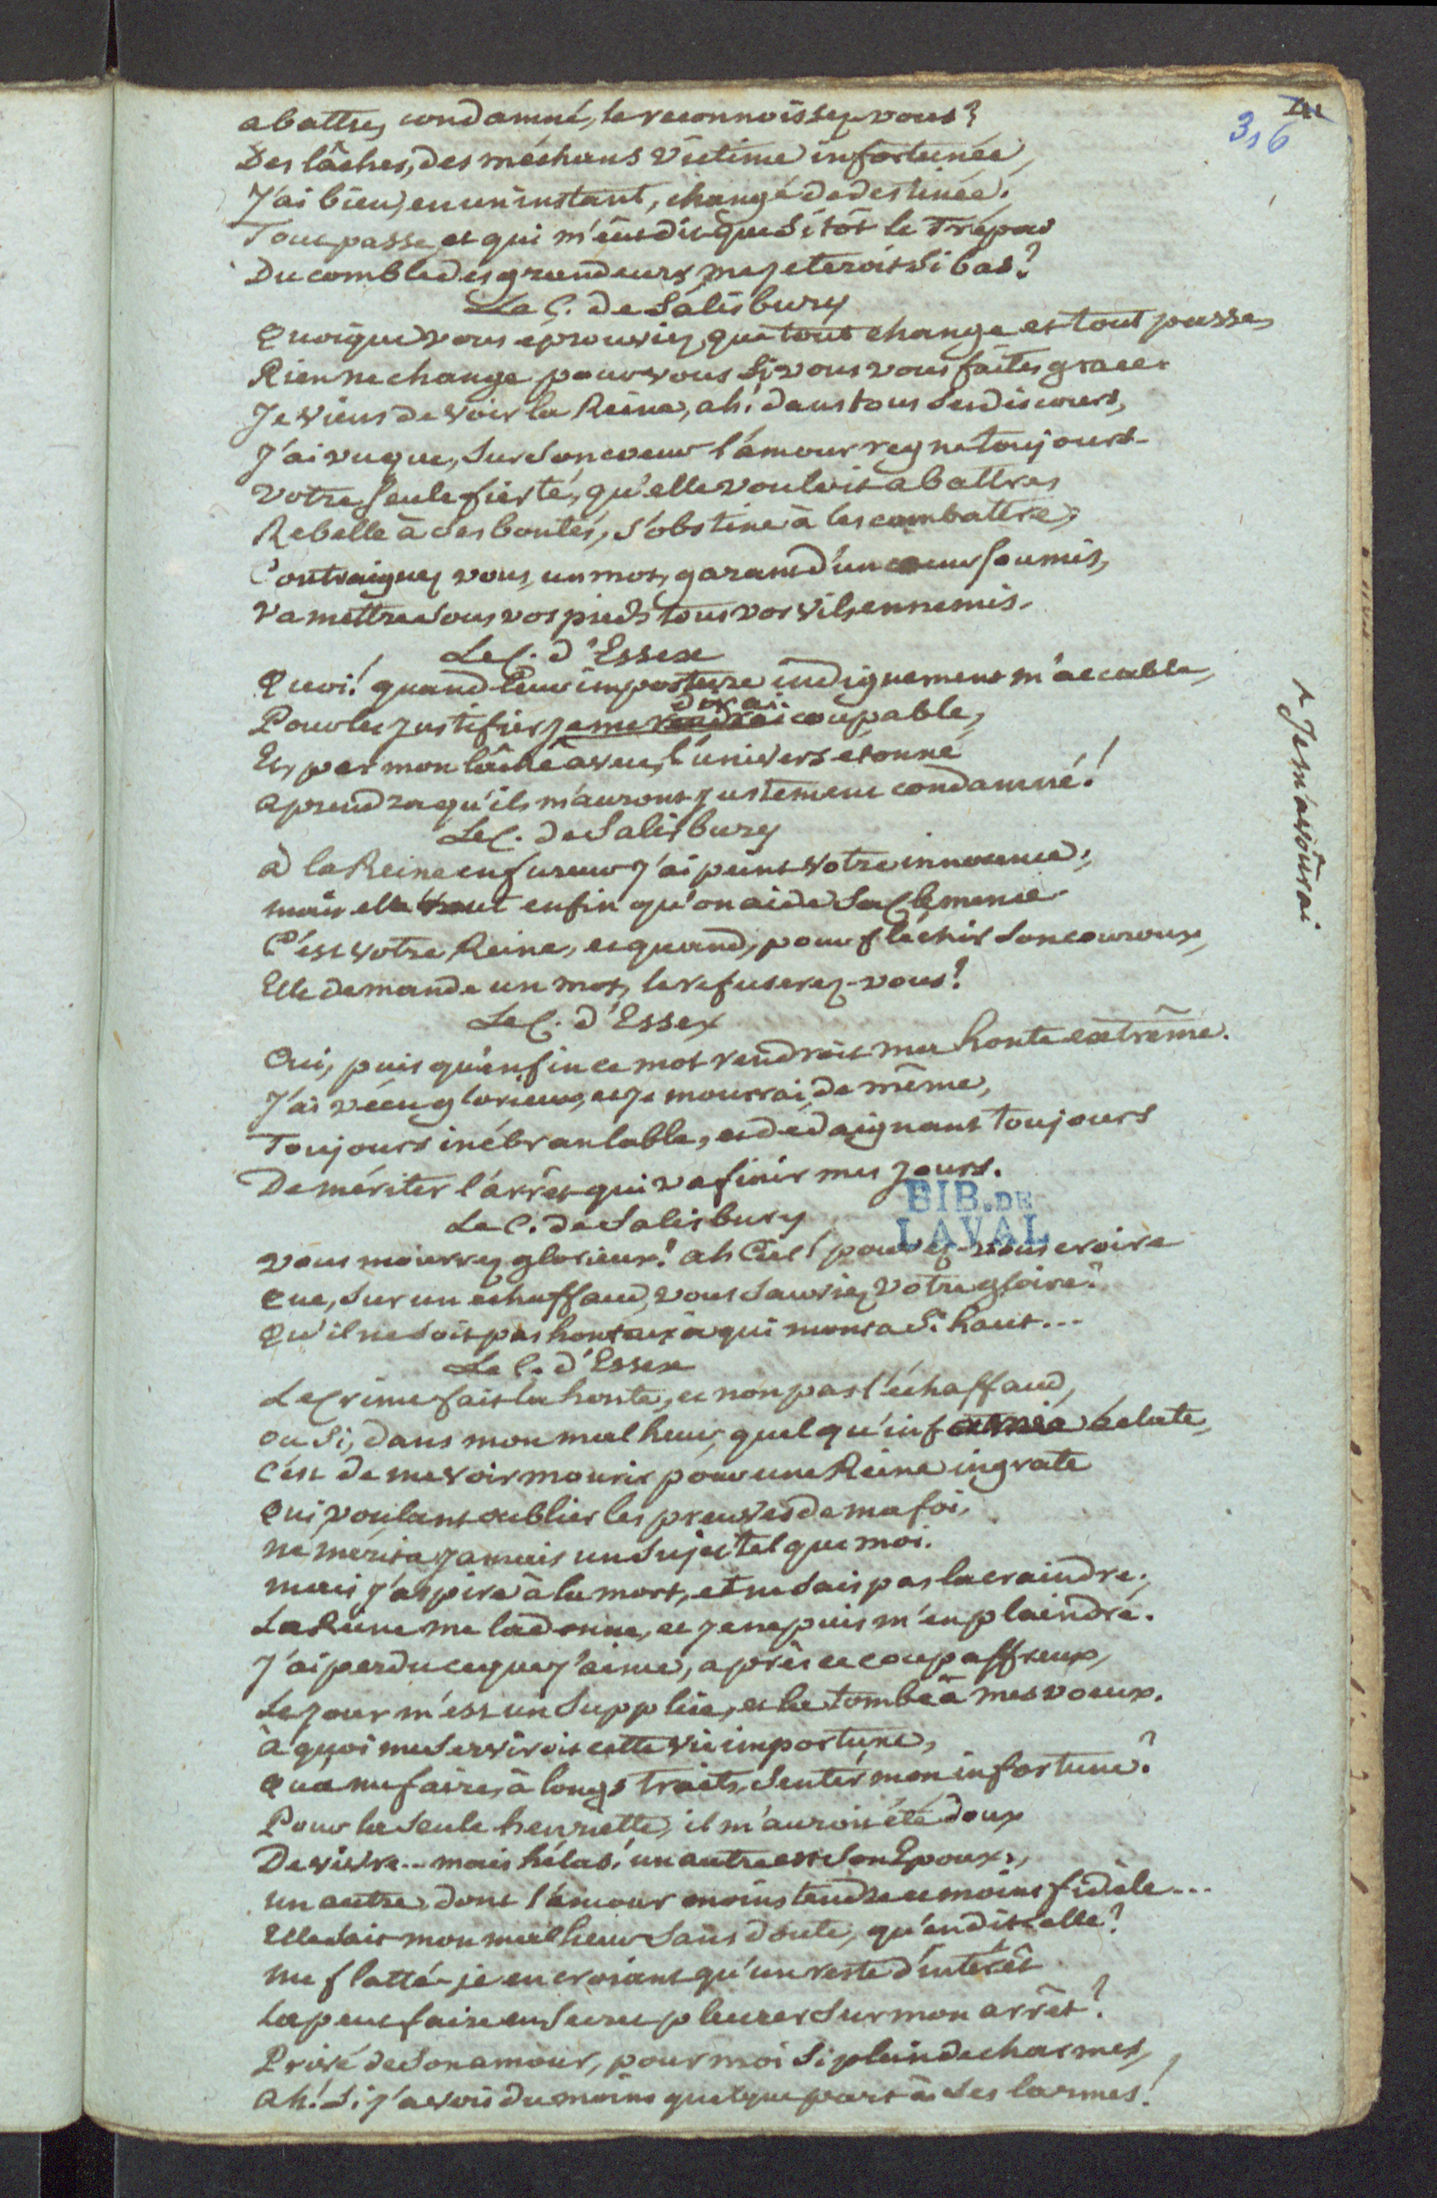 316
abattu, condamné, le reconnoissez vous?
Des lâches, des méchans victime infortunée,
J'ai bien, en un instant, changé de destinée.
Tout passe, et qui m'eût dit que sitôt le Trépas
Du comble des grandeurs, me jeteroit si bas?
Le C. de Salisbury
Quoique vous éprouviez que tout change et tout passe,
Rien ne change pour vous si vous vous faites grace.
Je viens de voir la Reine, ah! dans tous ses discours,
J'ai vu que, sur son coeur l'amour regne toujours.
Votre seule fierté, qu'elle vouloit abattre,
Rebelle à ses bontés, s'obstine à les combattre;
Contraignez vous, un mot, garant d'un coeur soumis,
Va mettre sous vos pieds tous vos vils ennemis.
Le C. d'Essex
Quoi! quand leur imposture indignement m'accable,
Pour les justifier, je me rendrai coupable,
^ Je m'avoûrai
Et, par mon lâche aveu, l'univers etonné
aprendra qu'ils m'auront justement condamné!
Le C. de Salisbury
à la Reine en fureur j'ai peint votre innocence;
mais elle veut enfin qu'on aide sa Clemence
C'est votre Reine, et quand, pour fléchir son couroux,
Elle demande un mot, le refuserez-vous?
Le C. d'Essex
Oui, puis qu'enfin ce mot rendroit ma honte extrême.
J'ai vécu glorieux, et je mourrai de même,
Toujours inébranlable, et dédaignant toujours
De mériter l'arrêt qui va finir mes jours.
BIB. DE
LAVAL
Le C. de Salisbury
Vous mourrez glorieux! ah Ciel! pouvez-vous croire
Que, sur un echaffaud, vous sauviez votre gloire?
Qu'il ne soit pas honteux à qui monta si haut...
Le C. d'Essex
Le Crime fait la honte, et non pas l'échaffaud,
ou si, dans mon malheur, quelqu'infamie éclate,
C'est de me voir mourir pour une Reine ingrate
Qui voulant oublier les preuves de ma foi,
ne mérita jamais un Sujet tel que moi.
mais j'aspire à la mort, et ne sais pas la craindre;
La Reine me la donne, et je ne puis m'en plaindre.
J'ai perdu ce que j'aime, après ce coup affreux,
Le jour m'est un supplice, et la tombe à mes voeux.
à quoi me serviroit cette vie importune,
Qu'à me faire, à longs traits, sentir mon infortune?
Pour la seule henriette, il m'auroit été doux
De vivre... mais hélas! un autre est son Epoux;
un autre dont l'amour moins tendre et moins fidèle...
Elle sait mon malheur sans doute, qu'en dit-elle?
me flatté-je en croiant qu'un reste d'intérêt
La peut faire en secret pleurer sur mon arrêt?
Privé de son amour, pour moi si plein de charmes,
Ah! si j'avois du moins quelque part à ses larmes!